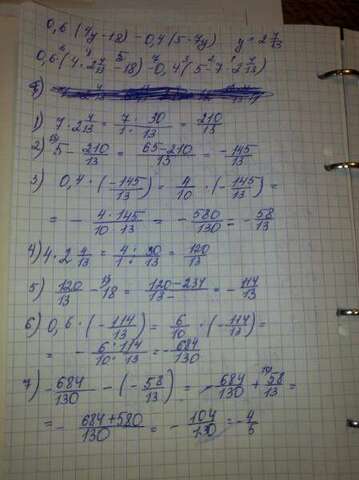 0,6(4y-18)-0,4(5-7y) y=2 7/13
0,6·(4·2 7/13-18)-0,4(5-7·2 7/13)
1) 7·2 4/13 = 7·30/1·13 = 210/13
2) 5 - 210/13 = 65-210/13 = -145/13
3) 0,4·(-145/13) = 4/10·(-145/13) =
= -4·145/10·13 = -580/130 = -58/13
4) 4·2 4/13 = 4·30/1·13 = 120/13
5) 120/13 - 18 = 120-234/13 = -114/13
6) 0,6·(-114/13) = 6/10·(-114/13) =
= -6·114/10·13 = -684/130
7) -684/130 - (-58/13) = -684/130 + 58/13 =
= -684+580/130 = -104/130 = -4/5